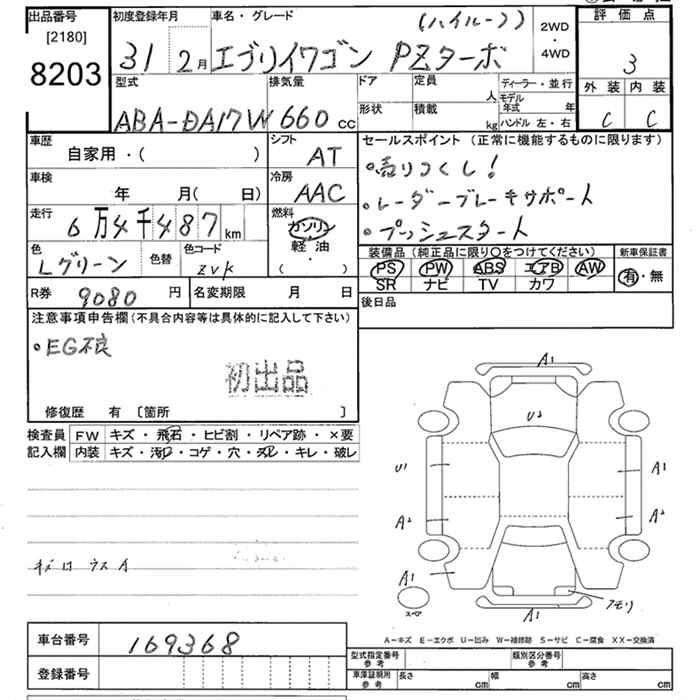 出品番号
[2180]
8203
初度登録年月
31 2月
車名・グレード (ハイルーフ)
エブリイワゴン PZターボ
2WD
・
4WD
評価点
3
外装 内装
C C
型式
ABA-DA17W
排気量
660 cc
ドア
定員 人
形状
積載 kg
ディーラー・並行
モデル年式 年
ハンドル 左・右
車歴
自家用・( )
シフト
AT
車検
年 月( 日)
冷房
AAC
走行
6万4千487km
燃料
ガソリン
軽油
( )
色
Lグリーン
色替
色コード
ZVK
R券 9080 円
名変期限 月 日
セールスポイント (正常に機能するものに限ります)
・売りつくし!
・レーダーブレーキサポート
・プッシュスタート
装備品 (純正品に限り〇をつけてください)
PS PW ABS エアB AW
SR ナビ TV カワ
新車保証書
有・無
後日品
注意事項申告欄 (不具合内容等は具体的に記入して下さい)
・EG不良
初出品
修復歴 有 [箇所 ]
検査員記入欄
FW キズ・飛石・ヒビ割・リペア跡・×要
内装 キズ・汚れ・コゲ・穴・ヌレ・キレ・破レ
A1
U2
U1
A1
A2
A2
A1
スペア
A1
A-キズ E-エクボ U-凹み W-補修跡 S-サビ C-腐食 XX-交換済
車台番号 169368
登録番号
型式指定番号 参考
類別区分番号 参考
車庫証明用 参考
長さ cm
幅 cm
高さ cm